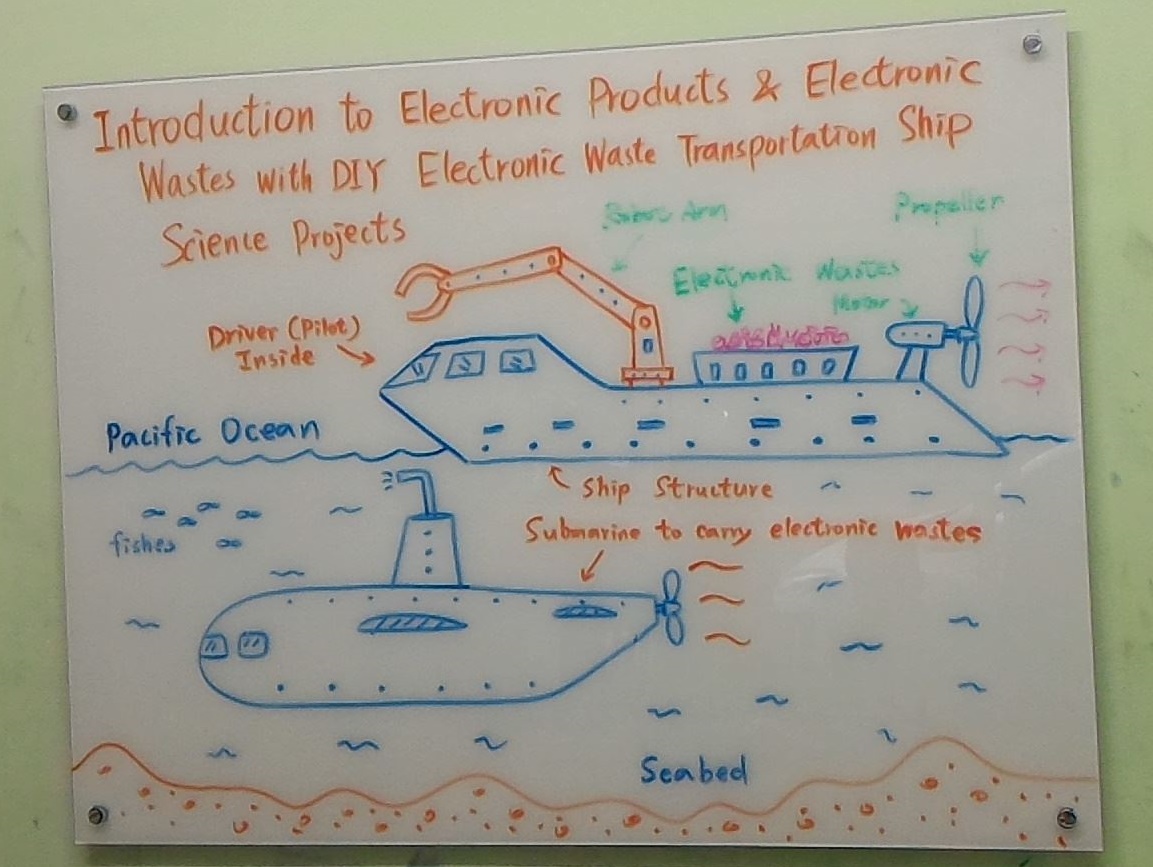 Introduction to Electronic Products & Electronic
Wastes with DIY Electronic Waste Transportation Ship
Science Projects
Robot Arm
Propeller
Electronic Wastes
Motor
Driver (Pilot)
Inside
Pacific Ocean
Ship Structure
Submarine to carry electronic wastes
fishes
Seabed